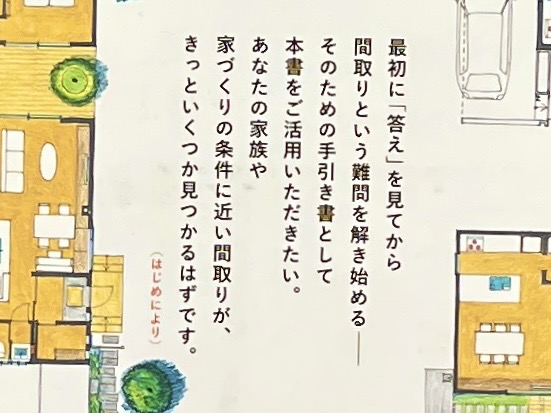 最初に「答え」を見てから
間取りという難問を解き始める――
そのための手引き書として
本書をご活用いただきたい。
あなたの家族や
家づくりの条件に近い間取りが、
きっといくつか見つかるはずです。
（はじめにより）